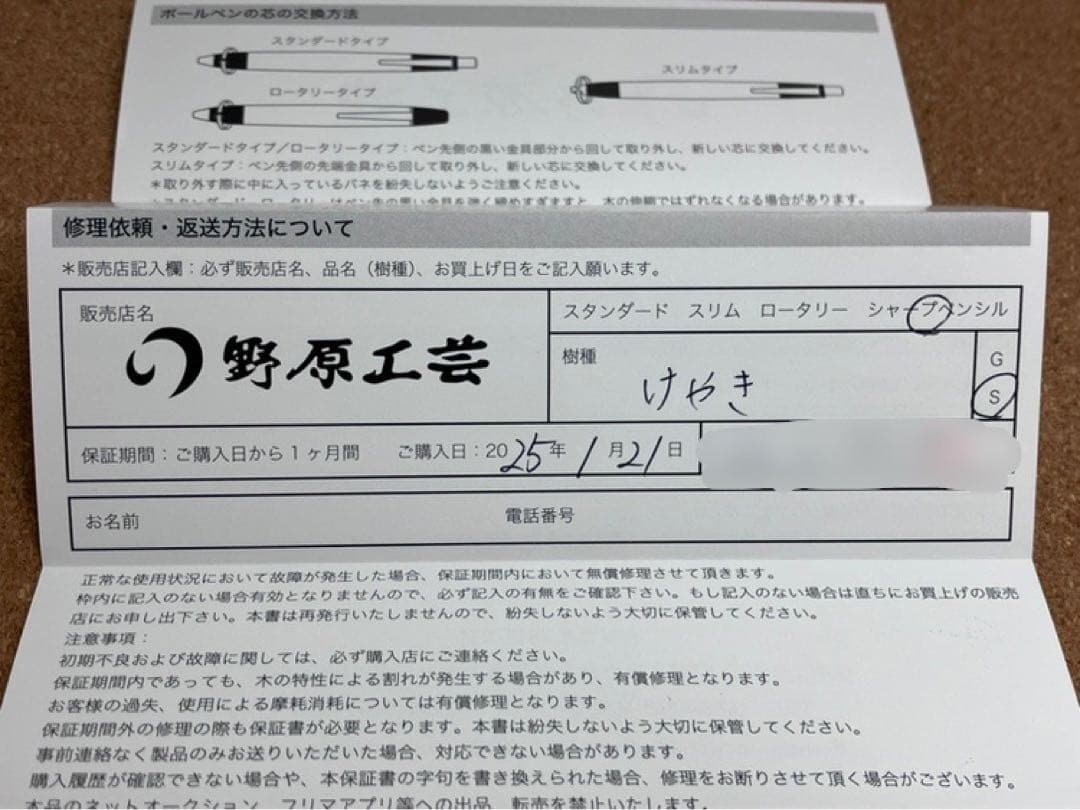 ボールペンの芯の交換方法
スタンダードタイプ
スリムタイプ
ロータリータイプ
スタンダードタイプ／ロータリータイプ：ペン先側の黒い金具部分から回して取り外し、新しい芯に交換してください。
スリムタイプ：ペン先側の先端金具から回して取り外し、新しい芯に交換してください。
＊取り外す際に中に入っているバネを紛失しないようご注意ください。
＊スタンダード、ロータリーはペン先の黒い金具を強く締めすぎますと、木の伸縮ではずれなくなる場合があります。
修理依頼・返送方法について
＊販売店記入欄：必ず販売店名、品名（樹種）、お買上げ日をご記入願います。
販売店名
野原工芸
スタンダード スリム ロータリー シャープペンシル
樹種
けやき
G
S
保証期間：ご購入日から１ヶ月間 ご購入日：2025年1月21日
お名前 電話番号
正常な使用状況において故障が発生した場合、保証期間内において無償修理させて頂きます。
枠内に記入のない場合有効となりませんので、必ず記入の有無をご確認下さい。もし記入のない場合は直ちにお買上げの販売
店にお申し出下さい。本書は再発行いたしませんので、紛失しないよう大切に保管してください。
注意事項：
初期不良および故障に関しては、必ず購入店にご連絡ください。
保証期間内であっても、木の特性による割れが発生する場合があり、有償修理となります。
お客様の過失、使用による摩耗消耗については有償修理となります。
保証期間外の修理の際も保証書が必要となります。本書は紛失しないよう大切に保管してください。
事前連絡なく製品のみお送りいただいた場合、対応できない場合があります。
購入履歴が確認できない場合や、本保証書の字句を書き換えられた場合、修理をお断りさせて頂く場合がございます。
本品のネットオークション、フリマアプリ等への出品、転売を禁止いたします。